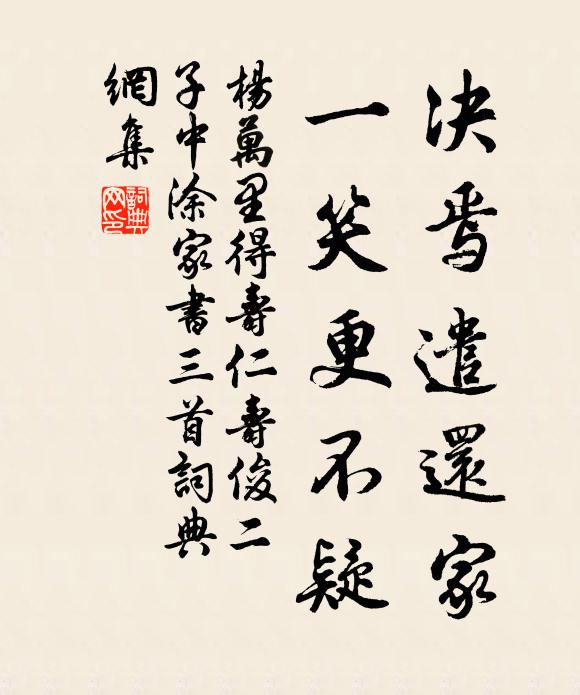 决焉遣還家
一笑更不疑
楊萬里得壽仁壽俊二
子中涂家書三首詞典
網集
詞典
网印